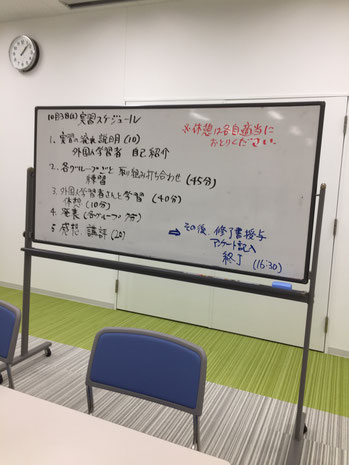 10月3日(土)実習スケジュール
※休憩は各自適当に
おとりください。
1. 実習の流れ説明(10)
外国人学習者 自己紹介
2. 各グループごと 取り組み打ち合わせ
練習 (45分)
3. 外国人学習者さんと学習 (40分)
休憩 (10分)
4. 発表 (各グループ 分)
5. 感想、講評(20)
⇒ その後、修了書授与
アンケート記入
終了 (16:30)